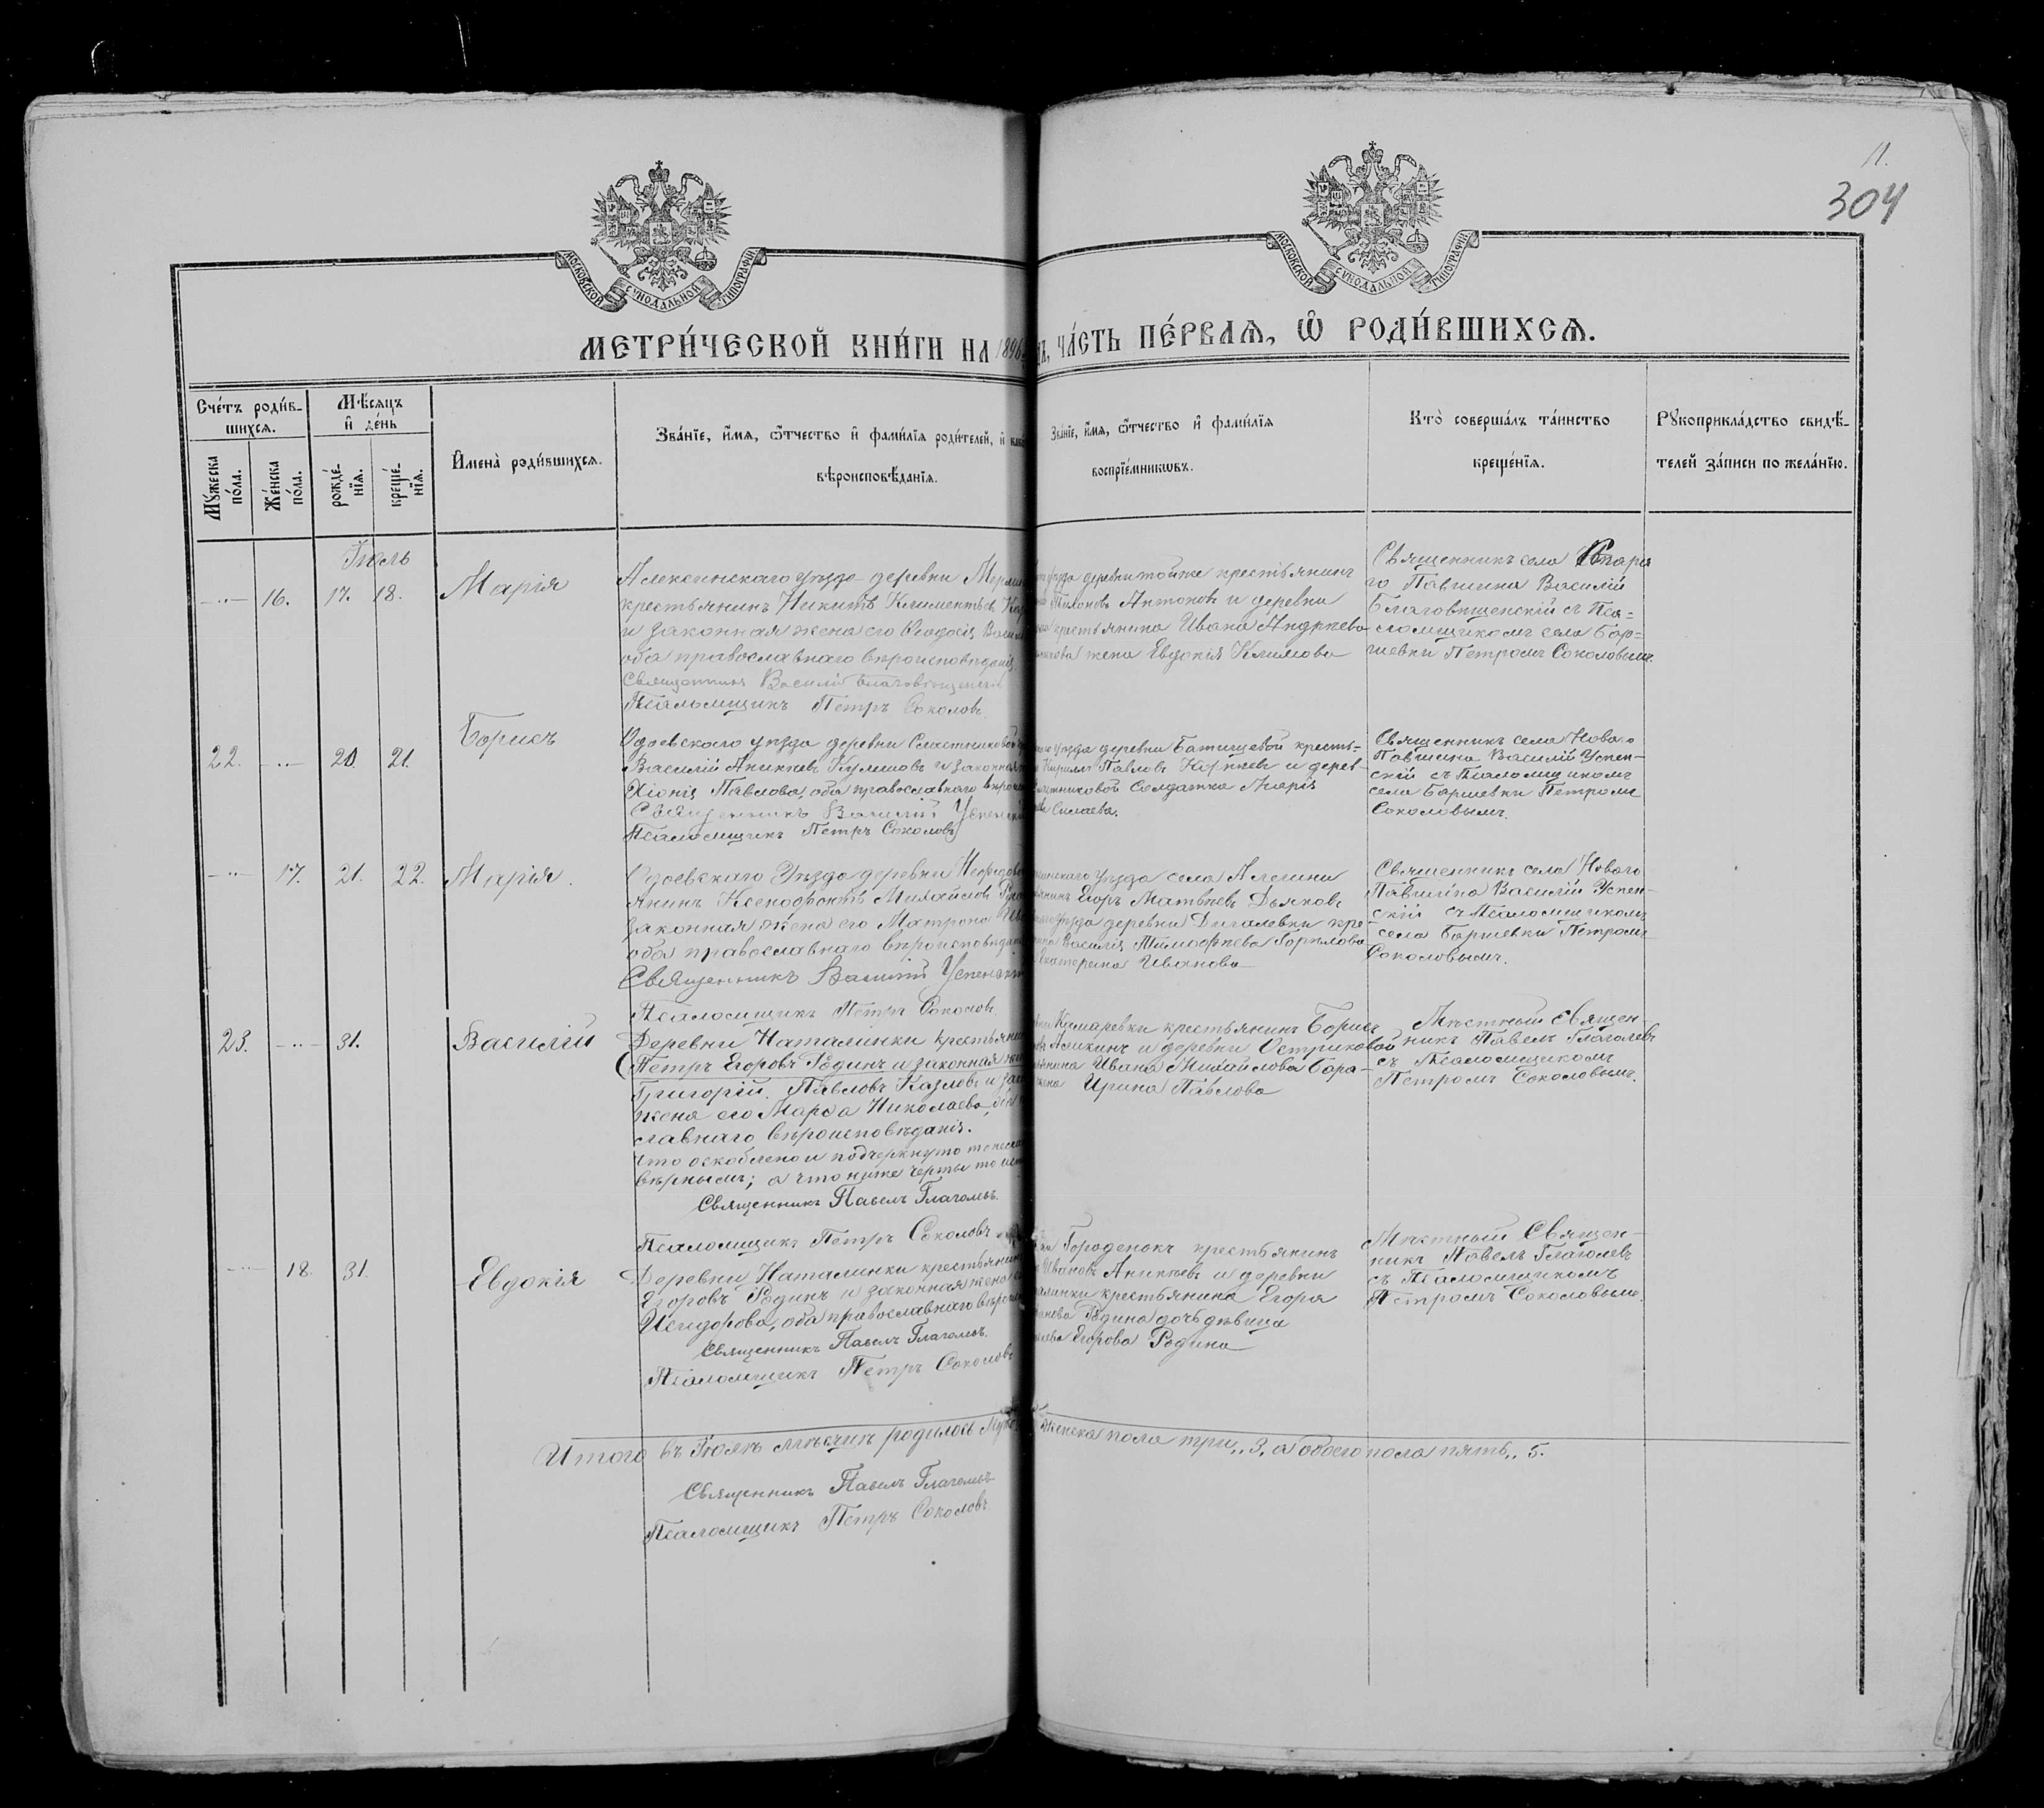 11.
304
МОСКОВСКОЙ СѴНОДАЛЬНОЙ ТИПОГРАФІИ
МОСКОВСКОЙ СѴНОДАЛЬНОЙ ТИПОГРАФІИ
МЕТРИ́ЧЕСКОЙ КНИ́ГИ НА 1896
ЧА́СТЬ ПЕ́РВАѦ, Ѽ РОДИ́ВШИХСѦ.
Сче́тъ роди́в-
шихсѧ.
Мꙋ́жеска по́ла.
Же́нска по́ла.
Мѣ́сѧцъ
и҆ де́нь
рожде́-
нїѧ.
креще́-
нїѧ.
И҆мена̀ роди́вшихсѧ.
Зва́нїе, и҆́мѧ, ѻ҆́тчество и҆ фами́лїѧ роди́телей, и҆
вѣроисповѣ́данїѧ.
Зва́нїе, и҆́мѧ, ѻ҆́тчество и҆ фами́лїѧ
воспрїе́мникѡвъ.
Кто̀ соверша́лъ та́инство
креще́нїѧ.
Рꙋкоприкла́дство свидѣ́-
телей за́писи по жела́нїю.
Іюль
—"— 16. 17. 18.
Марія
Алексинскаго уѣзда деревни
крестьянинъ Никита Климентьевъ
и законная жена его Ѳеодосія
оба православнаго вѣроисповѣданія
Священникъ Василій Благовѣщенскій
Псаломщикъ Петръ Соколовъ
уѣзда деревни тойже крестьянинъ
Тихоновъ Антоновъ и деревни
крестьянина Ивана Андреева
жена Евдокія Климова
Священникъ села Стара
го Павшина Василій
Благовѣщенскій съ Пса-
ломщикомъ села Бор-
шевки Петромъ Соколовымъ.
22. —"— 20 21.
Борисъ
Одоевскаго уѣзда деревни Сластниковой
Василій Аникѣевъ Кулешовъ и законная
Хіонія Павлова, оба православнаго
Священникъ Василій Успенскій
Псаломщикъ Петръ Соколовъ
уѣзда деревни Батищевой кресть-
Кириллъ Павловъ Корнеевъ и дерев-
Сластниковой Солдатка Марія
Силаева.
Священникъ села Новаго
Павшина Василій Успен-
скій съ Псаломщикомъ
села Боршевки Петромъ
Соколовымъ.
—"— 17. 21. 22.
Марія.
Одоевскаго Уѣзда деревни
янинъ Ксенофонтъ Михайловъ
законная жена его Матрона
оба православнаго вѣроисповѣданія
Священникъ Василій Успенскій
Псаломщикъ Петръ Соколовъ.
уѣзда села Алешни
Егоръ Матвѣевъ Дьяковъ
уѣзда деревни Дигалевки кре-
Василія Тимофеева Горилова
Екатерина Иванова
Священникъ села Новаго
Павшина Василій Успен-
скій съ Псаломщикомъ
села Боршевки Петромъ
Соколовымъ.
23. —"— 31.
Василій
Деревни Наталинки крестьянинъ
(Петръ Егоровъ Родинъ и законная
Григорій Павловъ Козловъ и
жена его Марѳа Николаева,
славнаго вѣроисповѣданія.
Что оскоблено и подчеркнуто
вѣрнымъ; а что ниже черты то
Священникъ Павелъ Глаголевъ.
Псаломщикъ Петръ Соколовъ
Комаревки крестьянинъ Борисъ
Аликинъ и деревни Остриковой
Ивана Михайлова Бора-
жена Ирина Павлова
Мѣстный Священ-
никъ Павелъ Глаголевъ
съ Псаломщикомъ
Петромъ Соколовымъ.
—"— 18. 31.
Евдокія
Деревни Наталинки крестьянинъ
Егоровъ Родинъ и законная жена
Исидорова, оба православнаго
Священникъ Павелъ Глаголевъ.
Псаломщикъ Петръ Соколовъ
Городенокъ крестьянинъ
Ивановъ Аникѣевъ и деревни
крестьянина Егора
Родина дочь дѣвица
Егорова Родина
Мѣстный Священ-
никъ Павелъ Глаголевъ
съ Псаломщикомъ
Петромъ Соколовымъ.
Итого въ Іюлѣ мѣсяцѣ родилось женска пола три„ 3, а обоего пола пять„ 5.
Священникъ Павелъ Глаголевъ
Псаломщикъ Петръ Соколовъ.